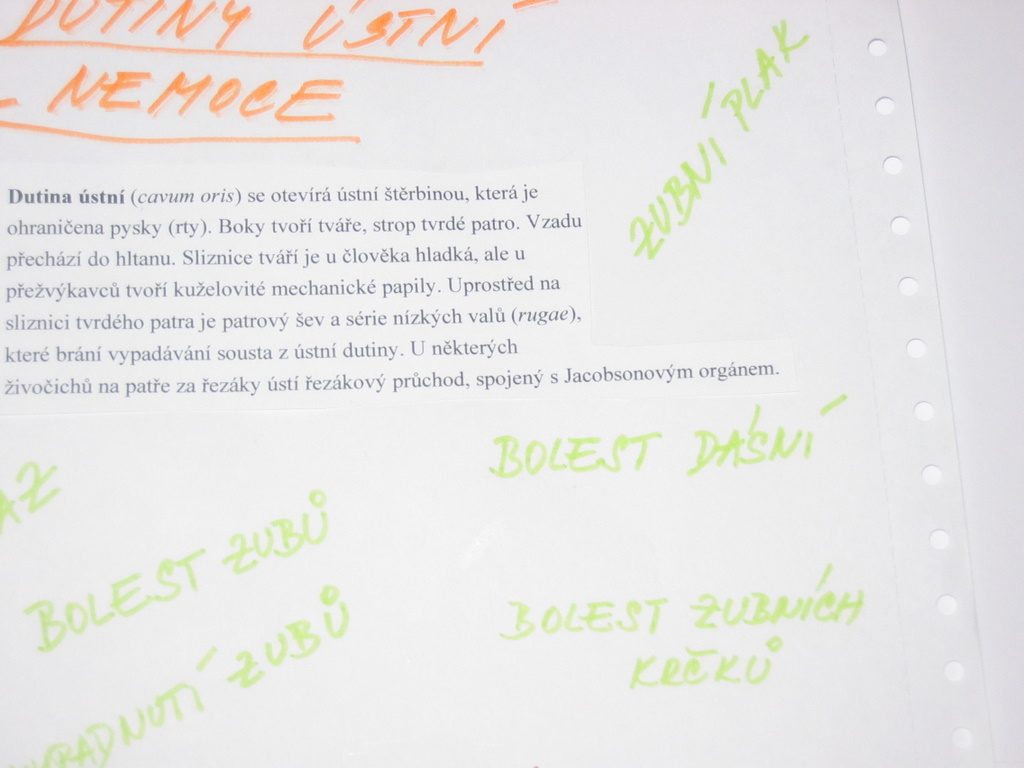 DUTINY ÚSTNÍ
- NEMOCE
ZUBNÍ PLAK
Dutina ústní (cavum oris) se otevírá ústní štěrbinou, která je
ohraničena pysky (rty). Boky tvoří tváře, strop tvrdé patro. Vzadu
přechází do hltanu. Sliznice tváří je u člověka hladká, ale u
přežvýkavců tvoří kuželovité mechanické papily. Uprostřed na
sliznici tvrdého patra je patrový šev a série nízkých valů (rugae),
které brání vypadávání sousta z ústní dutiny. U některých
živočichů na patře za řezáky ústí řezákový průchod, spojený s Jacobsonovým orgánem.
BOLEST DÁSNÍ
BOLEST ZUBŮ
BOLEST ZUBNÍCH
KRČKŮ
ZUBŮ